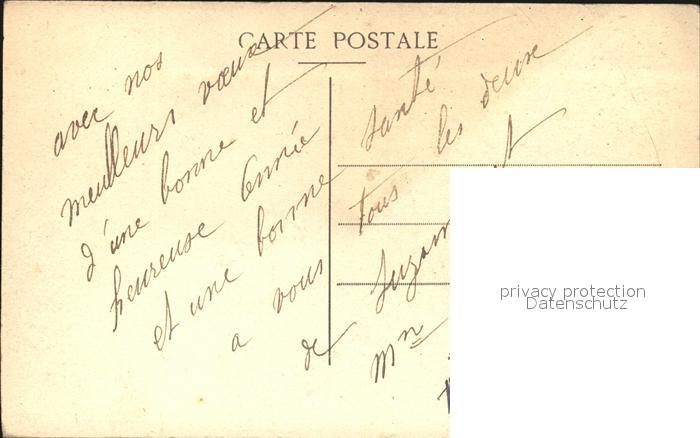 CARTE POSTALE
avec nos
meilleurs vœux
d'une bonne et
heureuse Année
et une bonne santé
a vous tous les deux
de Suzan
Mn
privacy protection
Datenschutz